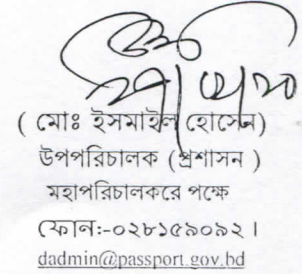 ( মোঃ ইসমাইল হোসেন)
উপপরিচালক (প্রশাসন )
মহাপরিচালকরে পক্ষে
ফোন:-০২৮১৫৯০৯২ ।
dadmin@passport.gov.bd